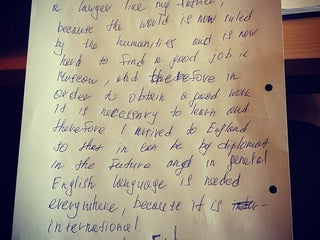 a lawyer like my father,
because the world is now ruled
by the humanities and is now
hard to find a good job in
Moscow, and therefore in
order to obtain a good work
it is necessary to learn and
therefore I arrived to England
so that in can be by diplomat
in the future and in general
English language is needed
everywhere, because it is
international.